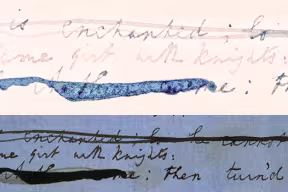 is enchanted; so
ame girt with knights:
me: th
enchanted; so he cannot
me girt with knights:
me: then turn'd